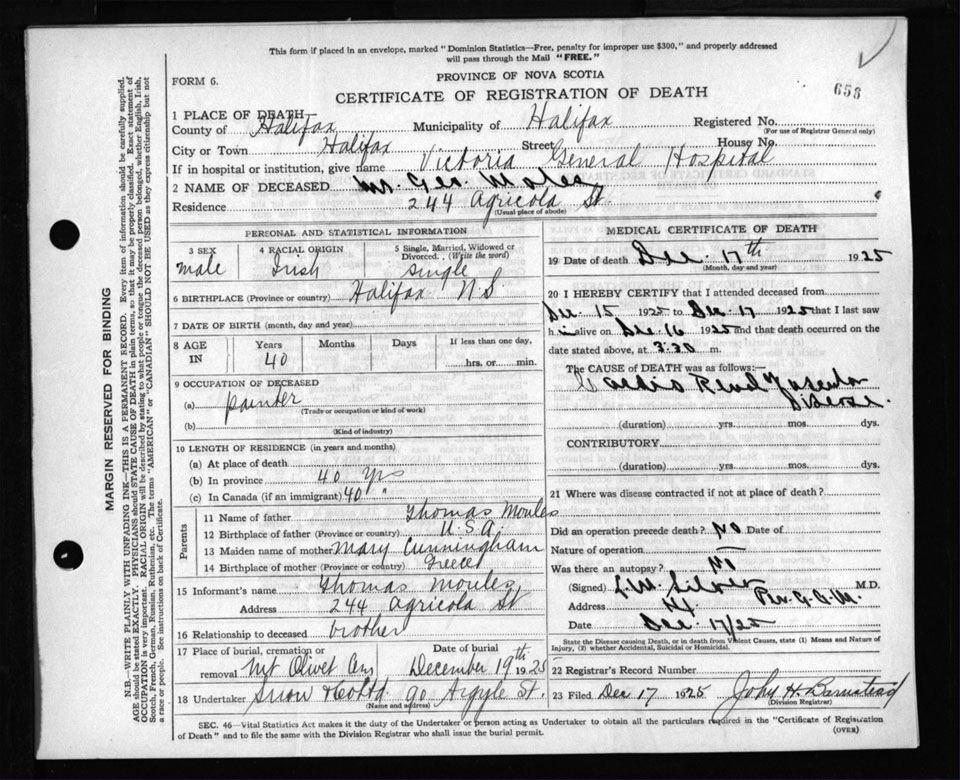 This form if placed in an envelope, marked "Dominion Statistics—Free, penalty for improper use $300," and properly addressed
will pass through the Mail "FREE."
FORM 6.
PROVINCE OF NOVA SCOTIA
658
CERTIFICATE OF REGISTRATION OF DEATH
1 PLACE OF DEATH
County of Halifax Municipality of Halifax Registered No.
(For use of Registrar General only)
City or Town Halifax Street House No.
If in hospital or institution, give name Victoria General Hospital
2 NAME OF DECEASED Mr. Geo. Moles
Residence 244 Agricola St.
(Usual place of abode)
PERSONAL AND STATISTICAL INFORMATION
3 SEX male
4 RACIAL ORIGIN Irish
5 Single, Married, Widowed or Divorced. (Write the word) single
6 BIRTHPLACE (Province or country) Halifax N.S.
7 DATE OF BIRTH (month, day and year)
8 AGE IN Years Months Days If less than one day,
40 hrs. or min.
9 OCCUPATION OF DECEASED
(a) painter
(Trade or occupation or kind of work)
(b)
(Kind of industry)
10 LENGTH OF RESIDENCE (in years and months)
(a) At place of death
(b) In province 40 yrs
(c) In Canada (if an immigrant) 40 "
Parents
11 Name of father Thomas Moules
12 Birthplace of father (Province or country) U.S.A.
13 Maiden name of mother Mary Cunningham
14 Birthplace of mother (Province or country) Greece
15 Informant's name Thomas Moules
Address 244 Agricola St
16 Relationship to deceased brother
17 Place of burial, cremation or removal Mt Olivet Cem
Date of burial December 19th 1925
18 Undertaker Snow & Co Ltd. 90 Argyle St.
(Name and address)
MEDICAL CERTIFICATE OF DEATH
19 Date of death Dec. 17th 1925
(Month, day and year)
20 I HEREBY CERTIFY that I attended deceased from
Dec. 15 1925 to Dec. 17 1925 that I last saw
h im alive on Dec 16 1925 and that death occurred on
date stated above, at 3:30 m.
The CAUSE OF DEATH was as follows:—
Cardio Renal Vascular
Disease.
(duration) yrs. mos. dys.
CONTRIBUTORY
(duration) yrs. mos. dys.
21 Where was disease contracted if not at place of death?
Did an operation precede death? No Date of
Nature of operation —
Was there an autopsy? No
(Signed) L.M. Silver M.D.
Address Per.
Date Dec. 17/25
State the Disease causing Death, or in death from Violent Causes, state (1) Means and Nature of
Injury, (2) whether Accidental, Suicidal or Homicidal.
22 Registrar's Record Number
23 Filed Dec 17 1925 John H. Barnstead
(Division Registrar)
SEC. 46—Vital Statistics Act makes it the duty of the Undertaker or person acting as Undertaker to obtain all the particulars required in the "Certificate of Registration
of Death" and to file the same with the Division Registrar who shall issue the burial permit.
(OVER)
MARGIN RESERVED FOR BINDING
N.B.—WRITE PLAINLY WITH UNFADING INK—THIS IS A PERMANENT RECORD. Every item of information should be carefully supplied.
AGE should be stated EXACTLY. PHYSICIANS should STATE CAUSE OF DEATH in plain terms, so that it may be properly classified. Exact statement of
OCCUPATION is very important. RACIAL ORIGIN will be described by stating to what people or tongue the deceased person belonged, whether English, Irish,
Scotch, French, German, Russian, Ruthenian, etc. The terms "AMERICAN" or "CANADIAN" SHOULD NOT BE USED as they express citizenship but not
a race or people. See instructions on back of Certificate.